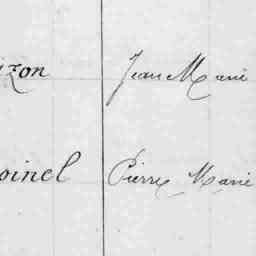 izon Jean Marie
oinel Pierre Marie